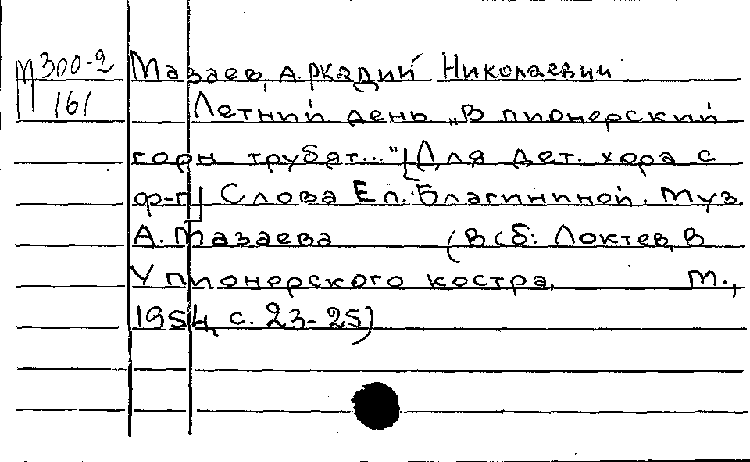 М300-2
161
Мазаев, Аркадий Николаевич
Летний день „В пионерский
горн трубят..." [Для дет. хора с
ф-п] Слова Ел. Благининой. Муз.
А. Мазаева (В сб: Локтев, В
У пионерского костра, М.,
1954, с. 23-25)